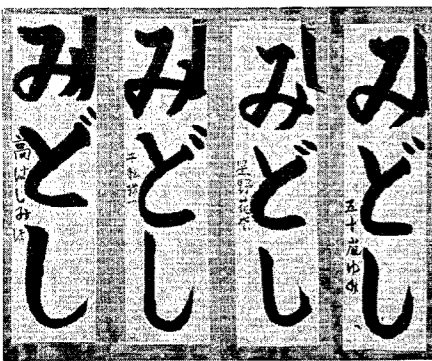 みどし
五十嵐ゆめ
みどし
星野
みどし
みどし
高はしみ